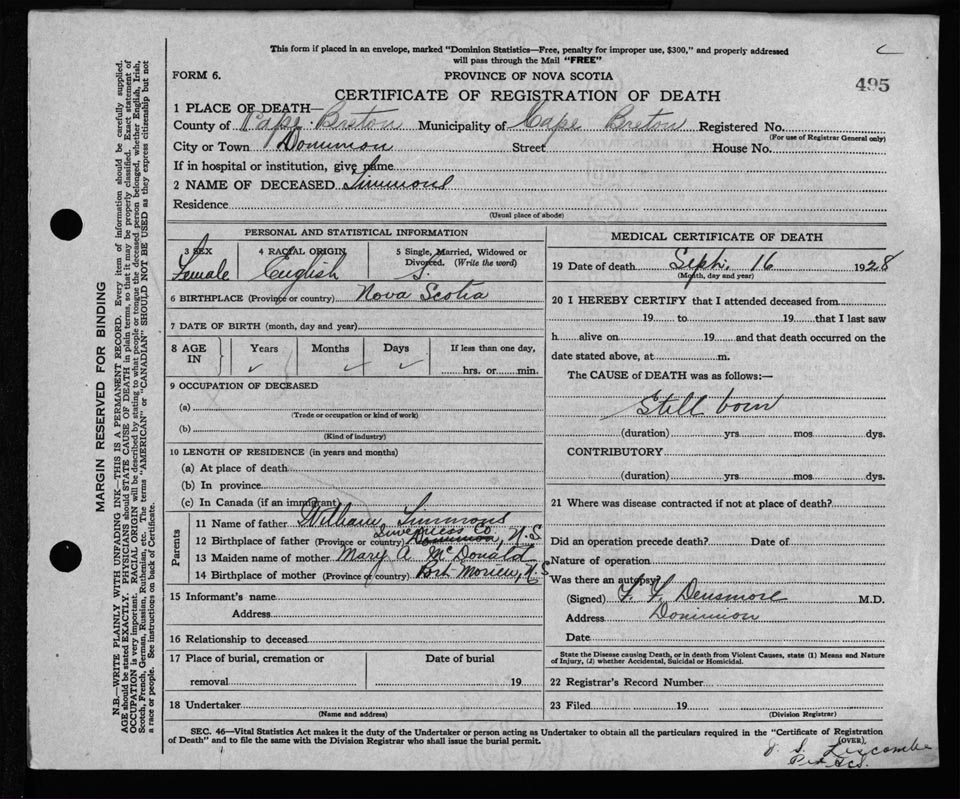 This form if placed in an envelope, marked "Dominion Statistics—Free, penalty for improper use, $300," and properly addressed
will pass through the Mail "FREE"
FORM 6. PROVINCE OF NOVA SCOTIA
CERTIFICATE OF REGISTRATION OF DEATH 495
1 PLACE OF DEATH—
County of Cape Breton Municipality of Cape Breton Registered No.
(For use of Registrar General only)
City or Town Dominion Street House No.
If in hospital or institution, give name
2 NAME OF DECEASED Simmons
Residence
(Usual place of abode)
PERSONAL AND STATISTICAL INFORMATION
3 SEX 4 RACIAL ORIGIN 5 Single, Married, Widowed or
Divorced. (Write the word)
Female English S.
6 BIRTHPLACE (Province or country) Nova Scotia
7 DATE OF BIRTH (month, day and year)
8 AGE IN Years Months Days If less than one day,
hrs. or min.
9 OCCUPATION OF DECEASED
(a)
(Trade or occupation or kind of work)
(b)
(Kind of industry)
10 LENGTH OF RESIDENCE (in years and months)
(a) At place of death
(b) In province
(c) In Canada (if an immigrant)
Parents
11 Name of father William Simmons
12 Birthplace of father (Province or country) Inverness Co Dominion, N.S
13 Maiden name of mother Mary A McDonald
14 Birthplace of mother (Province or country) Port Morien, N.S
15 Informant's name
Address
16 Relationship to deceased
17 Place of burial, cremation or Date of burial
removal 19
18 Undertaker
(Name and address)
MEDICAL CERTIFICATE OF DEATH
19 Date of death Sept. 16 1928
(Month, day and year)
20 I HEREBY CERTIFY that I attended deceased from
19 to 19 that I last saw
h alive on 19 and that death occurred on the
date stated above, at m.
The CAUSE of DEATH was as follows:—
Still born
(duration) yrs mos dys.
CONTRIBUTORY
(duration) yrs mos dys.
21 Where was disease contracted if not at place of death?
Did an operation precede death? Date of
Nature of operation
Was there an autopsy?
(Signed) F. F. Densmore M.D.
Address Dominion
Date
State the Disease causing Death, or in death from Violent Causes, state (1) Means and Nature
of Injury, (2) whether Accidental, Suicidal or Homicidal.
22 Registrar's Record Number
23 Filed 19
(Division Registrar)
SEC. 46—Vital Statistics Act makes it the duty of the Undertaker or person acting as Undertaker to obtain all the particulars required in the "Certificate of Registration
of Death" and to file the same with the Division Registrar who shall issue the burial permit.
(OVER)
J. S. Liscombe
MARGIN RESERVED FOR BINDING
N.B.—WRITE PLAINLY WITH UNFADING INK—THIS IS A PERMANENT RECORD. Every item of information should be carefully supplied.
AGE should be stated EXACTLY. PHYSICIANS should STATE CAUSE OF DEATH in plain terms, so that it may be properly classified. Exact statement of
OCCUPATION is very important. RACIAL ORIGIN will be described by stating to what people or tongue the deceased person belonged, whether English, Irish,
Scotch, French, German, Russian, Ruthenian, etc. The terms "AMERICAN" or "CANADIAN" SHOULD NOT BE USED as they express citizenship but not
a race or people. See instructions on back of Certificate.